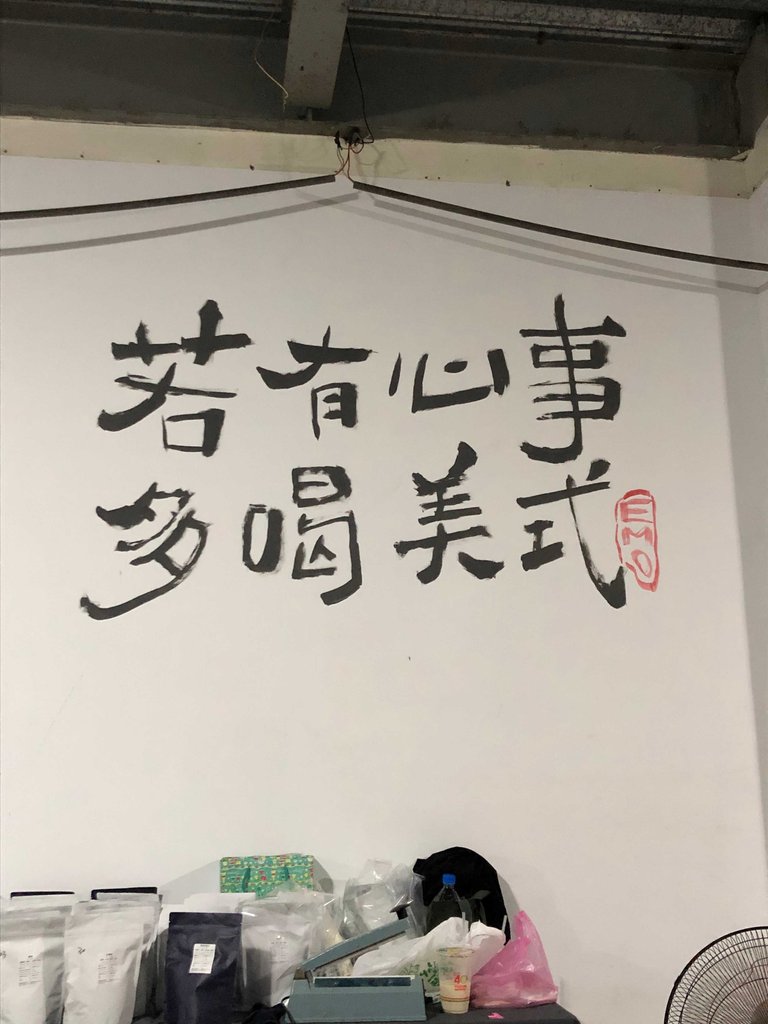 若有心事
多喝美式
EMO